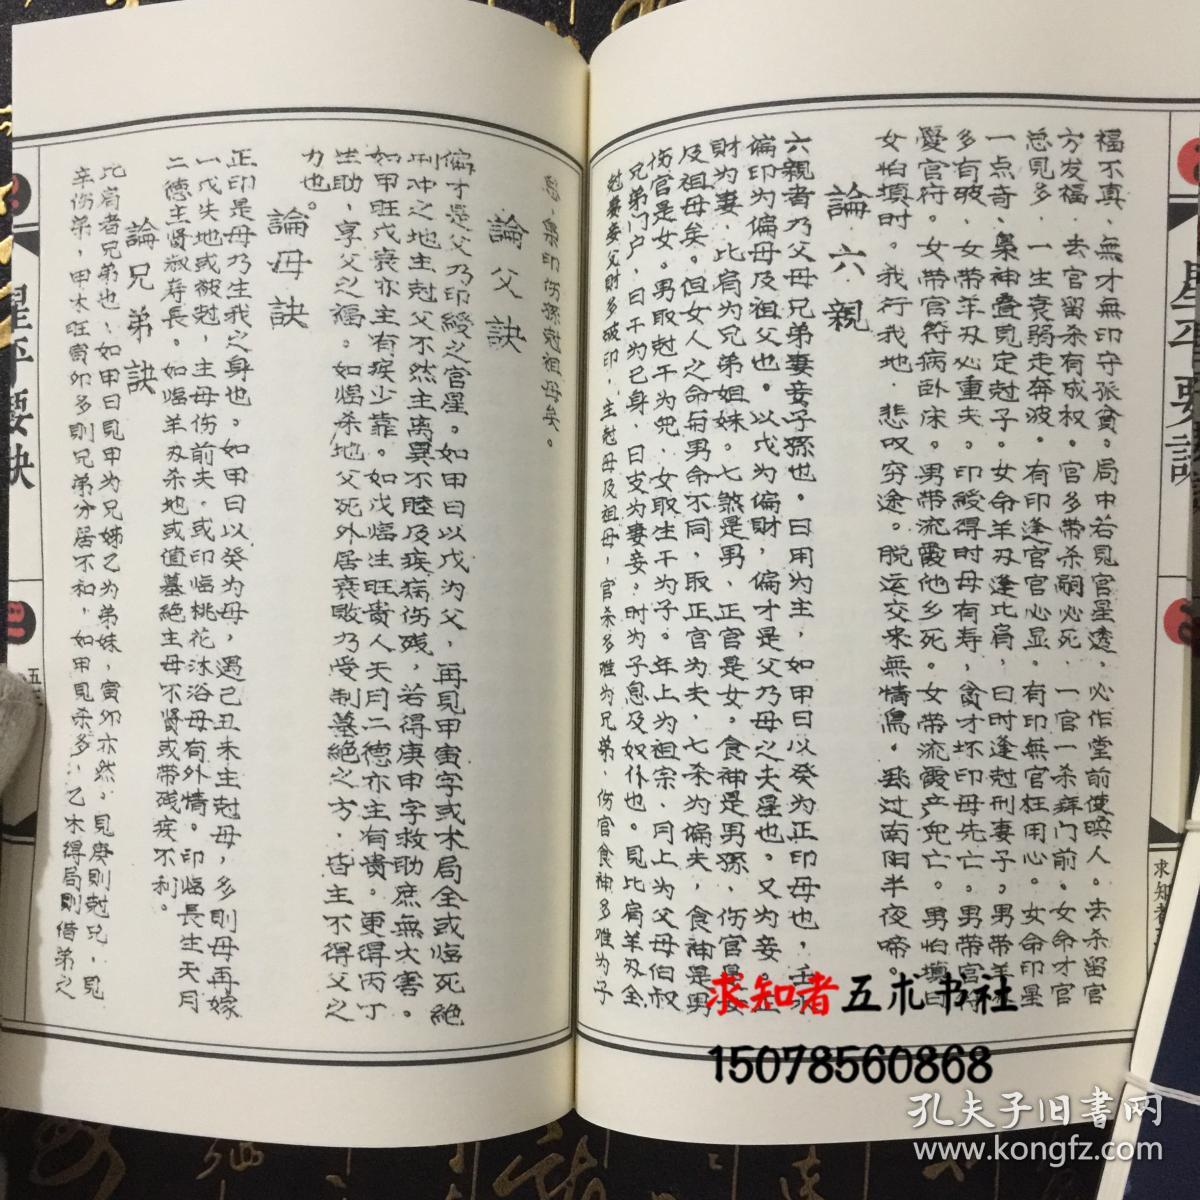 福不真，無才無印守孤貧。局中若見官星透，必作堂前使喚人。去杀留官
方发福，去官留杀有成权。官多带杀嗣必死，一官一杀拜门前。女命才官
忌見多，一生衰弱走奔波。有印逢官官必显，有印無官枉用心。女命印星
一点奇，梟神叠見定尅子。女命羊刃逢比肩，日时逢尅刑妻子。男带羊刃
多有破，女带羊刃必重夫。印綬得时母有寿，貪才坏印母先亡。男带宫符
憂官府。女带官符病卧床。男带流霞他乡死。女带流霞产兜亡。男怕填日
女怕填时。我行我地，悲叹穷途。脱运交来無情鳥。飛过南阳半夜啼。
論六親
六親者乃父母兄弟妻妾子孫也。日用为主，如甲日以癸为正印母也，壬水
偏印为偏母及祖父也。以戊为偏財，偏才是父乃母之夫星也。又为妾。正
財为妻，比肩为兄弟姐妹。七煞是男，正官是女。食神是男孫，伤官是女
及祖母矣。但女人之命与男命不同，取正官为夫，七杀为偏夫，食神是男
伤官是女。男取尅干为兜，女取生干为子。年上为祖宗，月上为父母伯叔
兄弟门户，日干为己身，日支为妻妾，时为子息及奴仆也。見比肩羊刃全
尅妻妾父财多破印，主尅母及祖母，官杀多难为兄弟，伤官食神多难为子
息，梟印伤孫尅祖母矣。
論父訣
偏才是父乃印綬之官星。如甲日以戊为父，再見甲寅字或木局全或临死絕
刑冲之地主尅父不然主离異不睦及疾病伤残，若得庚申字救助庶無大害。
如甲旺戊衰亦主有疾少靠。如戊临生旺贵人天月二德亦主有貴。更得丙丁
生助，享父之福。如临杀地父死外居衰敗乃受制墓絕之方，皆主不得父之
力也。
論母訣
正印是母乃生我之身也。如甲日以癸为母，遇己丑未主尅母，多則母再嫁
一戊失地或被尅，主母伤前夫，或印临桃花沐浴母有外情。印临長生天月
二德主賢淑寿長。如临羊刃杀地或值墓絕主母不賢或带残疾不利。
論兄弟訣
比肩者兄弟也，如甲日見甲为兄姊乙为弟妹，寅卯亦然。見庚則尅兄，見
辛伤弟，甲木旺寅卯多則兄弟分居不和，如甲見杀多，乙木得局則借弟之
求知者五术书社
15078560868
孔夫子旧書网
www.kongfz.com